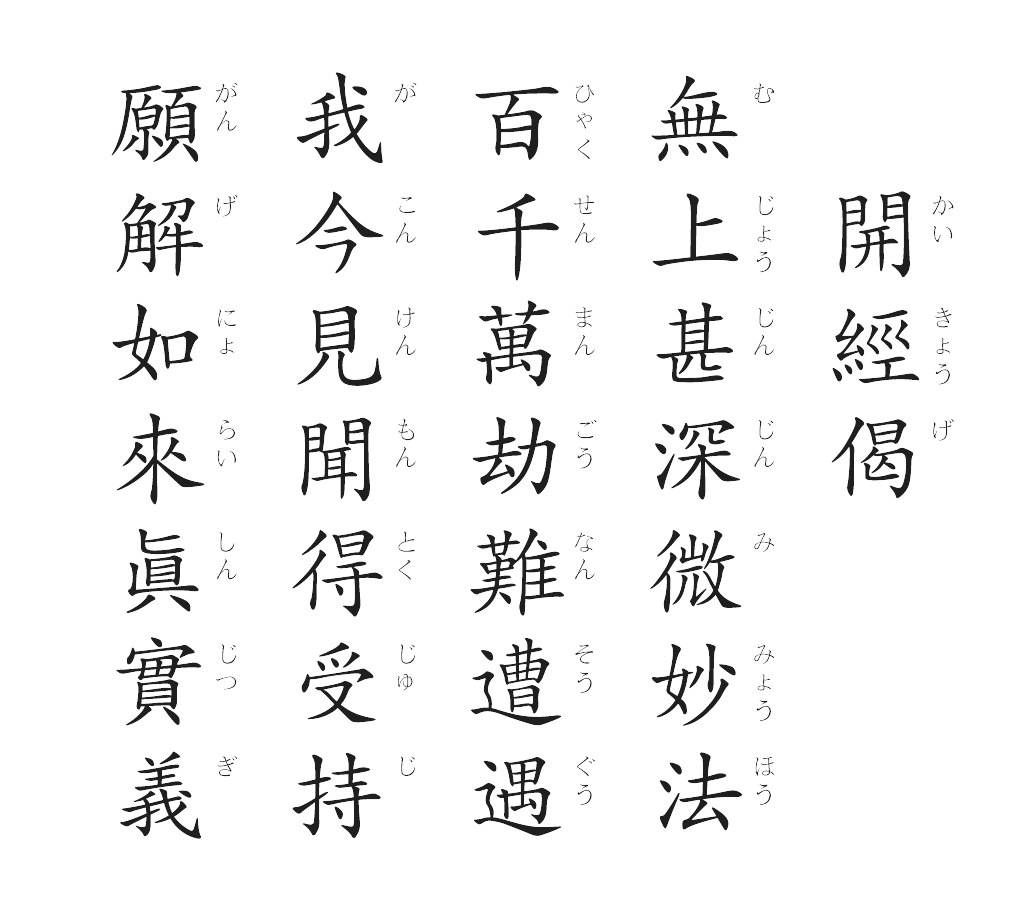 開經偈
かいきょうげ
無上甚深微妙法
むじょうじんじんみみょうほう
百千萬劫難遭遇
ひゃくせんまんごうなんそうぐう
我今見聞得受持
がこんけんもんとくじゅじ
願解如來眞實義
がんげにょらいしんじつぎ